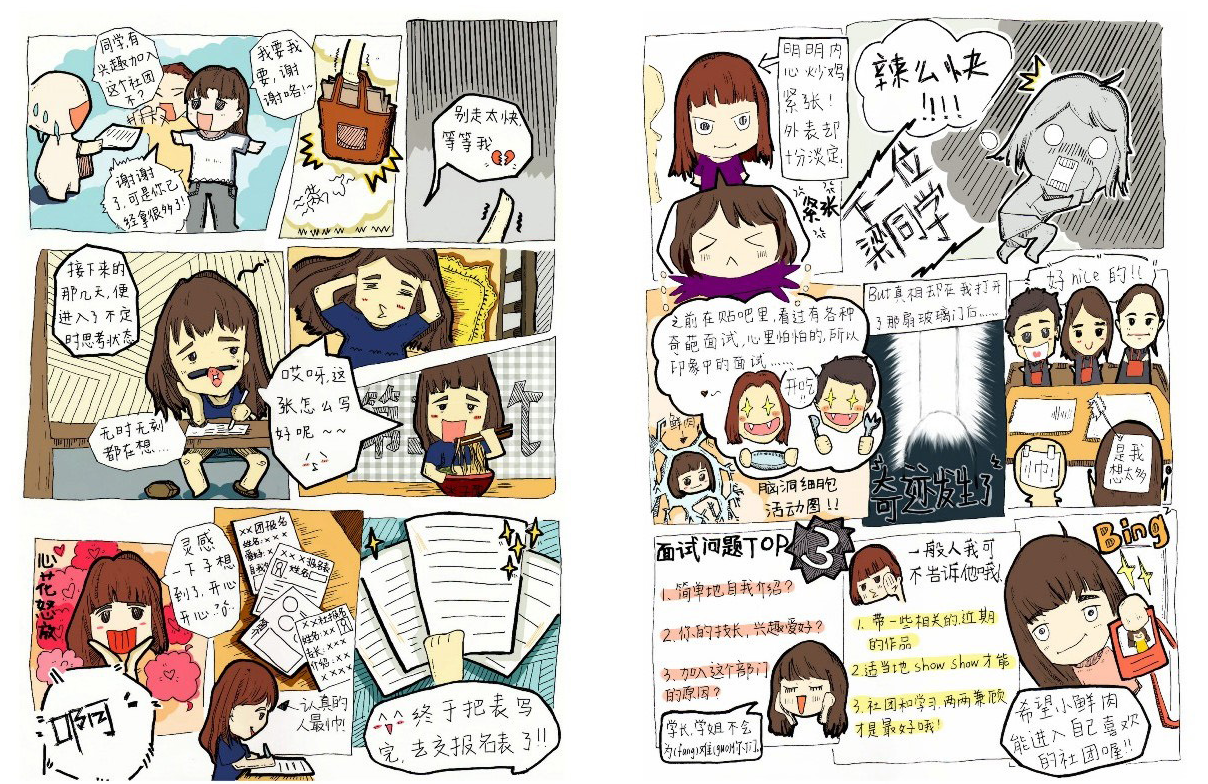 同学,有
兴趣加入
这个社团
不?
我要我
要,谢
谢哈!~
谢谢
了,可是你已
经拿很多了!
别走太快
等等我
接下来的
那几天,便
进入了不定
时思考状态
无时无刻
都在想...
哎呀,这
张怎么写
好呢~~
心花怒放
灵感
一下子想
到了,开心
开心?
啊
xx团报名
姓名:xxx
姓名:
xx社报名
姓名:xx
介绍:xx
认真的
人最帅!
终于把表写
完,去交报名表了!!
明明内
心炒鸡
紧张!
外表却
十分淡定.
紧张
辣么快
!!!!
下一位
梁同学
之前在贴吧里,看过有各种
奇葩面试,心里怕怕的,所以
印象中的面试......
开吃
鲜肉
脑洞细胞
活动图!!
But真相却在我打开
了那扇玻璃门后......
奇迹发生了
好nice的!!
帅!
是我
想太多
面试问题TOP 3
1.简单地自我介绍?
2.你的技长,兴趣爱好?
3.加入这个部门
的原因?
学长,学姐不会
为(fang)难(guo)你们.
一般人我可
不告诉他哦!
1.带一些相关的,近期
的作品
2.适当地show show才能
3.社团和学习,两两兼顾
才是最好哦!
Bing
希望小鲜肉
能进入自己喜欢
的社团喔!!